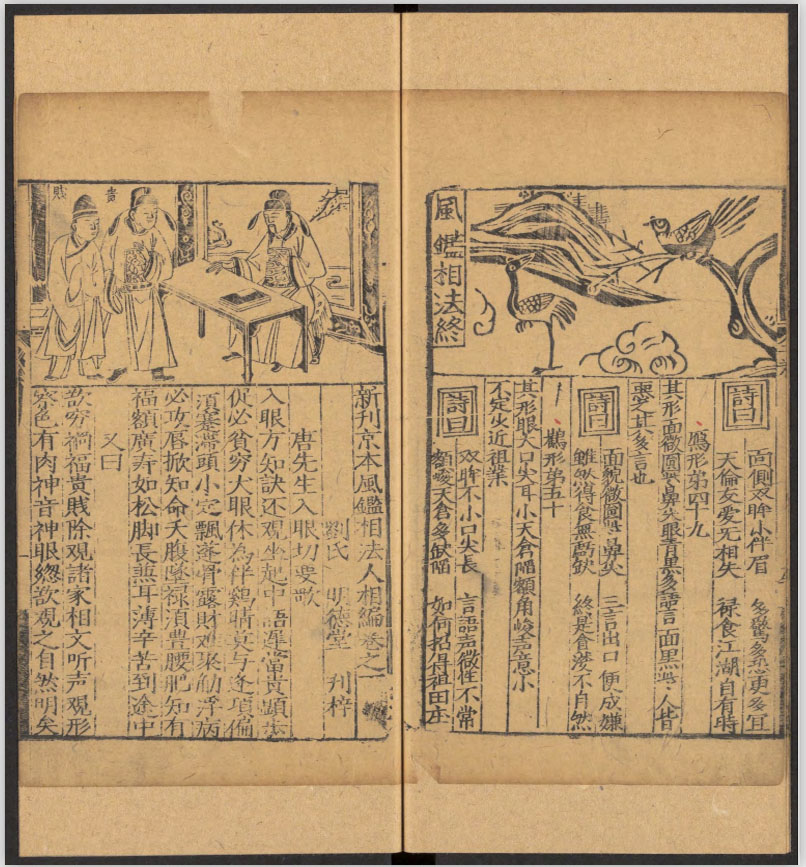 詩曰
面側双眸小伴眉 多驚多恐更多宜
天倫友愛死相失 禄食江湖自有時
鴈形第四十九
其形面微圓鼻尖眼青黑多語言面黑人皆
惡之其多言也
詩曰
面貌微圓鼻尖 三言出口便成嫌
雖然得食無虧缺 終是貪婪不自然
鸛形第五十
其形眼大口尖耳小天倉陷額角峻声意小
不定火近祖業
詩曰
双眸不小口尖長 言語声微性不常
額峻天倉多缺陷 如何招得祖田庄
風鑑相法終
貴
賤
新刊京本風鑑相法人相編卷之一
劉氏 明德堂 刊梓
唐先生入眼切要歌
入眼方知訣还观坐起中語遲當貴顕步
促必貧穷大眼休為伴鷄睛莫与逢項偏
須蹇滯頭小定飄蓬骨露財难聚觔浮病
必攻唇掀知命夭腹墜禄須豊腰肥知有
福額廣寿如松脚長兼耳薄辛苦到途中
又曰
欲穷禍福貴賤除观諸家相文听声观形
察色有肉神音神眼緫欲观之自然明矣